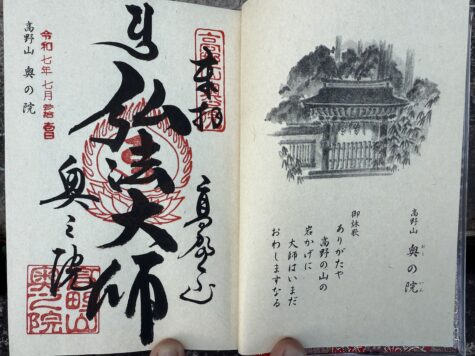 高野山 奥の院
おく いん
御詠歌
ありがたや
高野の山の
岩かげに
大師はいまだ
おわしますなる
奉拝
高野山
弘法大師
奥之院
高野山奥之院
令和七年七月
高野山 奥の院